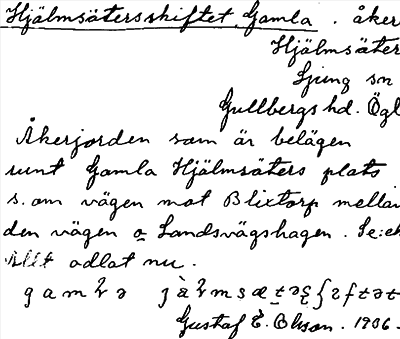 Hjälmsätersskiftet, Gamla . åker
Hjälmsäter
Ljung sn
Gullbergs hd. Ögl
Åkerjorden som är belägen
runt Gamla Hjälmsäters plats
s. om vägen mot Blixtorp mellan
den vägen o Landsvägshagen. Se: ek
Allt odlat nu.
Gustaf E. Olsson. 1936